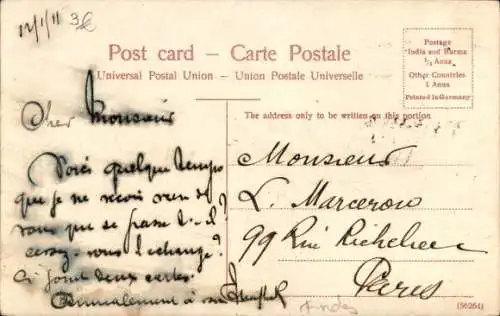 12/1/11 3€
Post card – Carte Postale
Universal Postal Union – Union Postale Universelle
Postage
India and Burma
½ Anna
Other Countries
1 Anna
Printed in Germany
The address only to be written on this portion
Cher Monsieur
Voici quelque temps
que je ne reçois rien de
vous que se passe-t-il?
cessez-vous l'échange?
Ci joint deux cartes.
Monsieur
L. Marcerou
99 Rue Richelieu
Paris
Indes
(56264)